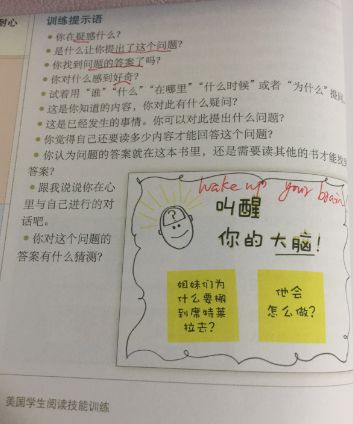 耐心
训练提示语
• 你在疑惑什么?
• 是什么让你提出了这个问题?
• 你找到问题的答案了吗?
• 你对什么感到好奇?
• 试着用“谁”“什么”“在哪里”“什么时候”或者“为什么”提问
• 这是你知道的内容,你对此有什么疑问?
• 这是已经发生的事情。你可以对此提出什么问题?
• 你觉得自己还要读多少内容才能回答这个问题?
• 你认为问题的答案就在这本书里,还是需要读其他的书才能找到
答案?
• 跟我说说你在心
里与自己进行的对
话吧。
• 你对这个问题的
答案有什么猜测?
wake up your brain!
?
叫醒
你的大脑!
姐妹们为
什么要搬
到席特莱
拉去?
他会
怎么做?
美国学生阅读技能训练